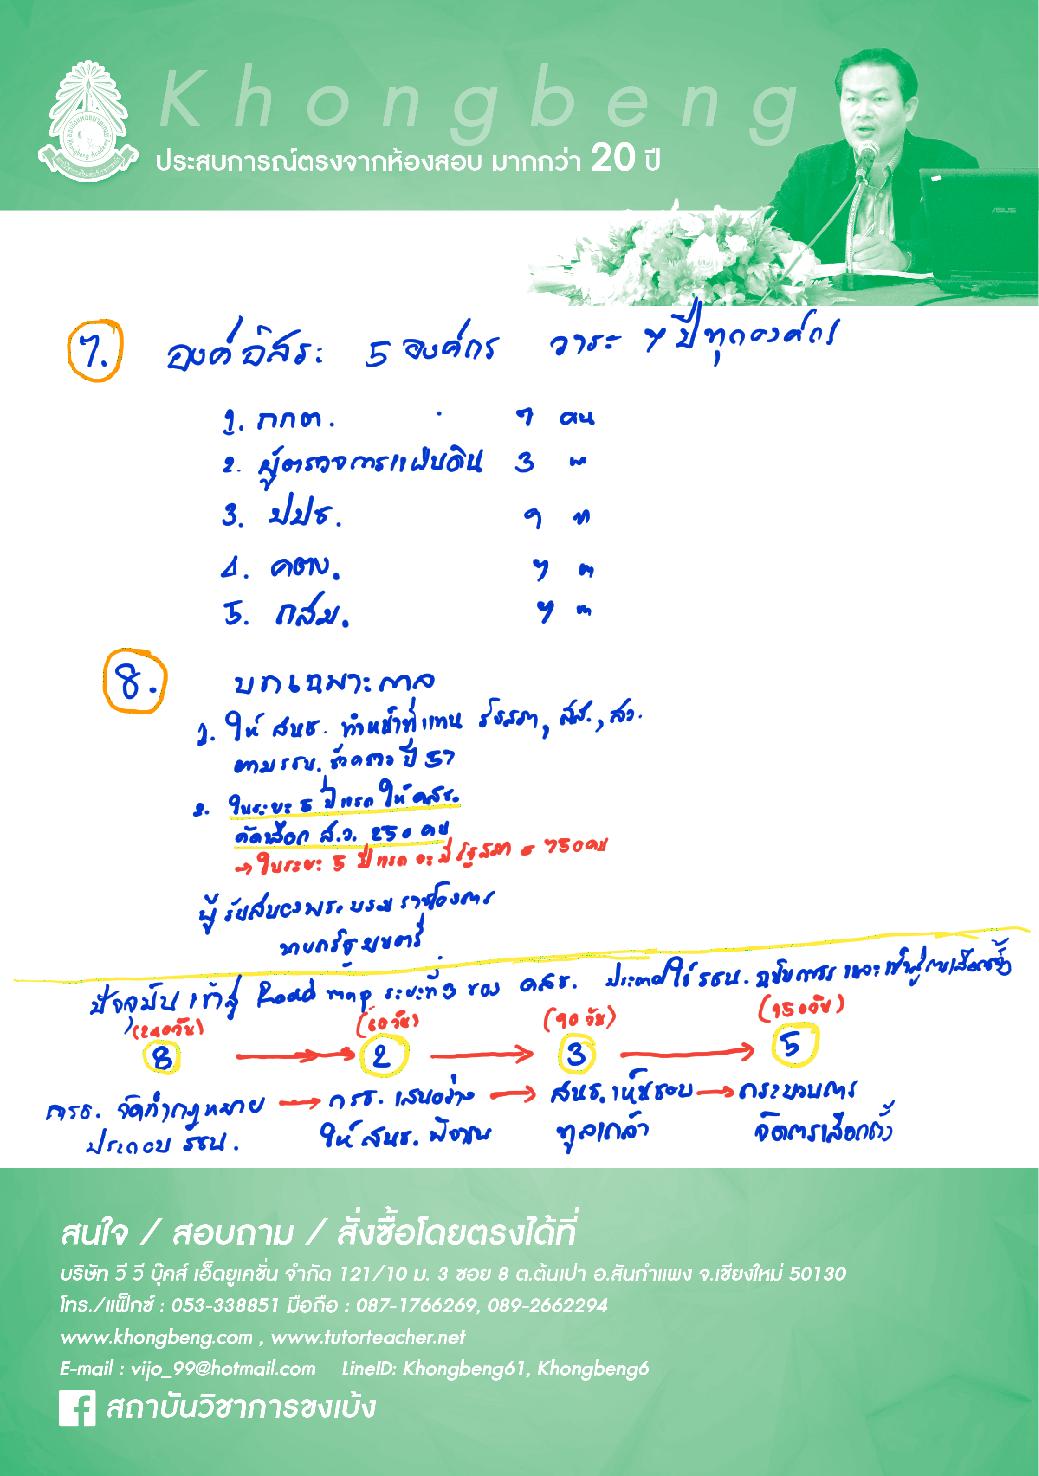 Khongbeng
ประสบการณ์ตรงจากห้องสอบ มากกว่า 20 ปี
ASUS
7. องค์อิสระ 5 องค์กร วาระ 7 ปีทุกองค์กร
1. กกต. 7 คน
2. ผู้ตรวจการแผ่นดิน 3 "
3. ปปช. "
4. คตง. 7 "
5. กสม. 7 "
8. บทเฉพาะกาล
1. ให้ สนช. ทำหน้าที่แทน รัฐสภา, สส., สว.
ตาม รธน. ชั่วคราว ปี 57
2. ในระยะ 5 ปีแรก ให้ คสช.
คัดเลือก ส.ว. 250 คน
→ ในระยะ 5 ปีแรก จะมีรัฐสภา = 750 คน
ผู้รับสนองพระบรมราชโองการ
นายกรัฐมนตรี
ปัจจุบันเข้าสู่ Road map ระยะที่ 3 ของ คสช. ประกาศใช้ รธน. ฉบับถาวร และเข้าสู่การเลือกตั้ง
(240วัน) (60วัน) (90 วัน) (150วัน)
8 → 2 → 3 → 5
กรธ. จัดทำกฎหมาย → กรธ. เสนอร่าง → สนช. เห็นชอบ → กระบวนการ
ประกอบ รธน. ให้ สนช. ทูลเกล้า จัดการเลือกตั้ง
สนใจ / สอบถาม / สั่งซื้อโดยตรงได้ที่
บริษัท วี วี บุ๊คส์ เอ็ดยูเคชั่น จำกัด 121/10 ม. 3 ซอย 8 ต.ต้นเปา อ.สันกำแพง จ.เชียงใหม่ 50130
โทร./แฟ็กซ์ : 053-338851 มือถือ : 087-1766269, 089-2662294
www.khongbeng.com , www.tutorteacher.net
E-mail : vijo_99@hotmail.com LineID: Khongbeng61, Khongbeng6
สถาบันวิชาการขงเบ้ง